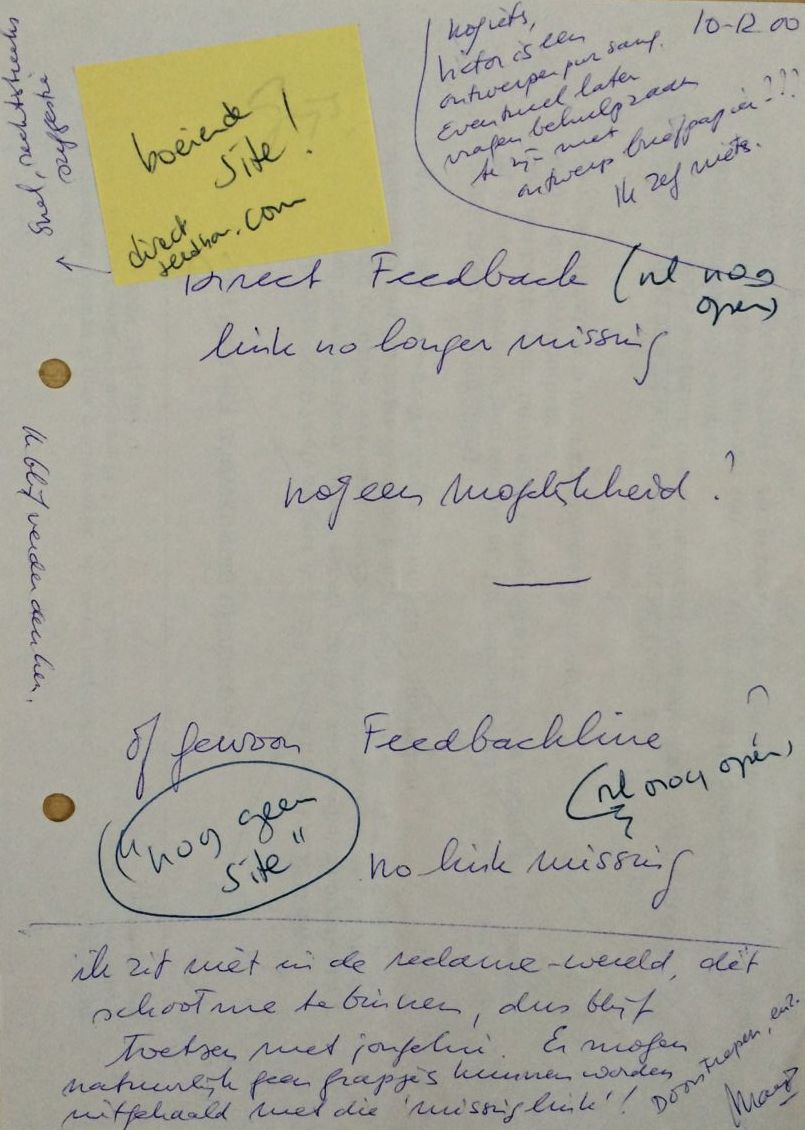 10-12 00
nog iets,
Victor is een
ontwerper pur sang.
Eventueel later
vragen behulpzaam
te zijn met
ontwerp briefpapier???
Ik zeg niets.
Snel, rechtstreeks
suggestie
boeiende
site!
direct
.com
Direct Feedback (nl nog
open)
link no longer missing
nog een mogelijkheid?
Ik blijf verder denken.
of gewoon Feedbackline
(nl nog open)
"nog geen
site"
no link missing
ik zit niet in de reclame-wereld, dit
schoot me te binnen, dus blijf
toetsen met jongelui. Er mogen
natuurlijk geen grapjes kunnen worden
uitgehaald met die 'missing link'!